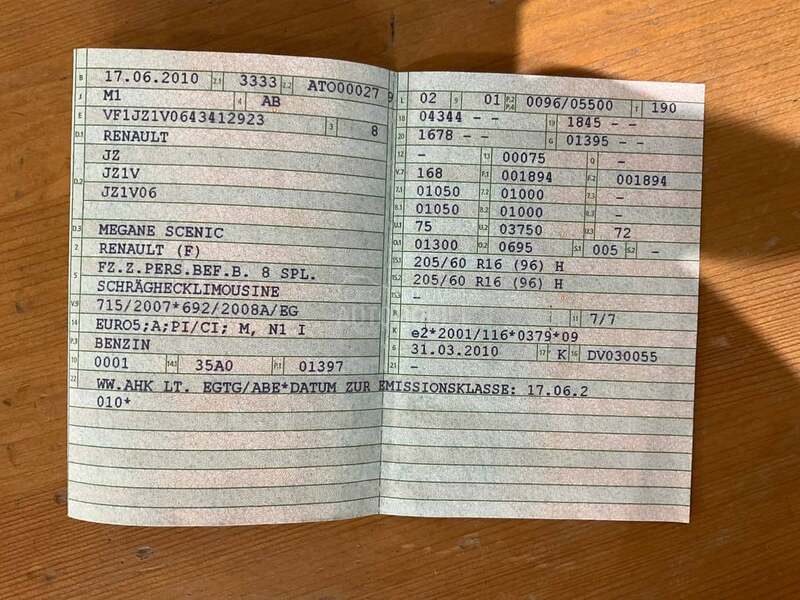 B 17.06.2010 2.1 3333 2.2 ATO00027 9
J M1 4 AB
E VF1JZ1V0643412923 3 8
D.1 RENAULT
JZ
D.2 JZ1V
JZ1V06
D.3 MEGANE SCENIC
2 RENAULT (F)
5 FZ.Z.PERS.BEF.B. 8 SPL.
SCHRÄGHECKLIMOUSINE
V.9 715/2007*692/2008A/EG
14 EURO5;A;PI/CI; M, N1 I
P.3 BENZIN
10 0001 14.1 35A0 P.1 01397
22 WW.AHK LT. EGTG/ABE*DATUM ZUR EMISSIONSKLASSE: 17.06.2
010*
L 02 9 01 P.2 P.4 0096/05500 T 190
18 04344 - - 19 1845 - -
20 1678 - - G 01395 - -
12 - 13 00075 Q -
V.7 168 F.1 001894 F.2 001894
7.1 01050 7.2 01000 7.3 -
8.1 01050 8.2 01000 8.3 -
U.1 75 U.2 03750 U.3 72
O.1 01300 O.2 0695 S.1 005 S.2 -
15.1 205/60 R16 (96) H
15.2 205/60 R16 (96) H
15.3 -
R - 11 7/7
K e2*2001/116*0379*09
6 31.03.2010 17 K 16 DV030055
21 -